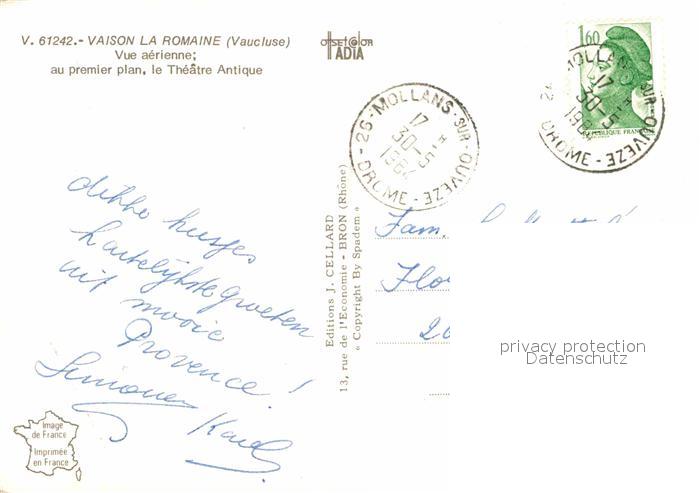 V. 61242.- VAISON LA ROMAINE (Vaucluse)
Vue aérienne;
au premier plan, le Théâtre Antique
offset color
IADIA
1,60
REPUBLIQUE FRANÇAISE
26-MOLLANS-SUR-OUVEZE
17
30-5
1984
DROME
26-MOLLANS-SUR-OUVEZE
17
30-5
198
DROME
dikke kusjes
hartelijkste groeten
uit mooie
Provence!
Simonne
Karel
Editions J. CELLARD
13, rue de l'Economie - BRON (Rhône)
« Copyright By Spadem »
Fam.
Flo
20
privacy protection
Datenschutz
Image
de France
Imprimée
en France